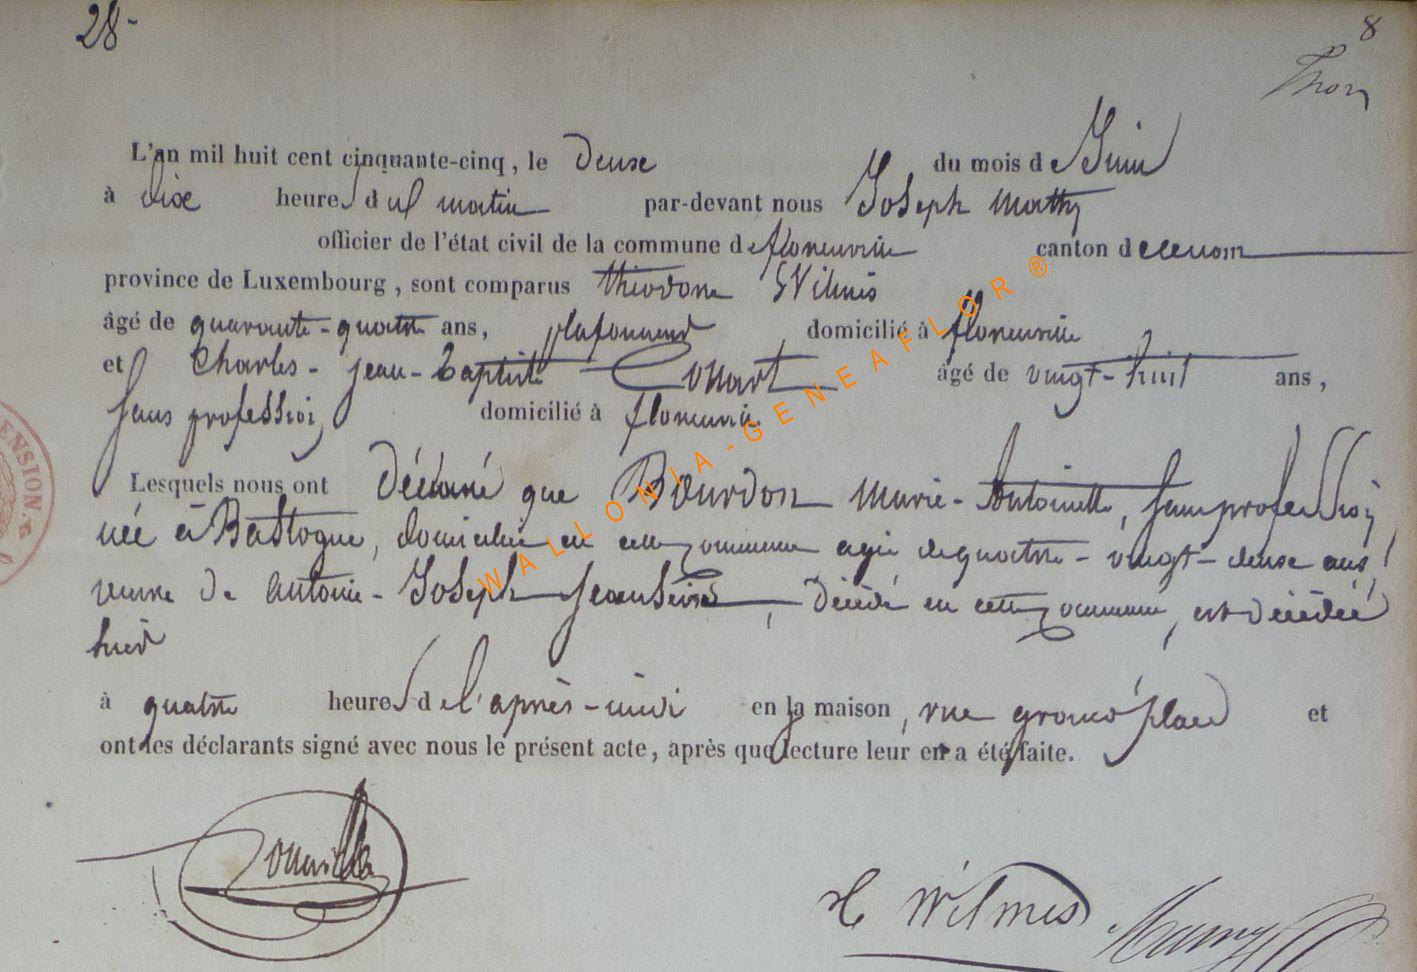 28-
8
L'an mil huit cent cinquante-cinq, le deuse du mois de Juin
à dixe heures du matin par-devant nous Joseph Mathy
officier de l'état civil de la commune de florenville canton de
province de Luxembourg, sont comparus théodore Wilmes
âgé de quarante-quatre ans, plafonneur domicilié à florenville
et Charles-jean-baptiste âgé de vingt-huit ans,
sans profession domicilié à florenville
Lesquels nous ont déclaré que Bourdon Marie-Antoinette, sans profession
née à Bastogne, domiciliée en cette commune agée de quatre-vingt-deuse ans,
veuve de antoine-Joseph, décédé en cette commune, est décédée
hier
à quatre heures de l'après-midi en la maison, rue grand'place et
ont les déclarants signé avec nous le présent acte, après que lecture leur en a été faite.
Wilmes
ENSION.
WALLONIA-GENEAFLOR®